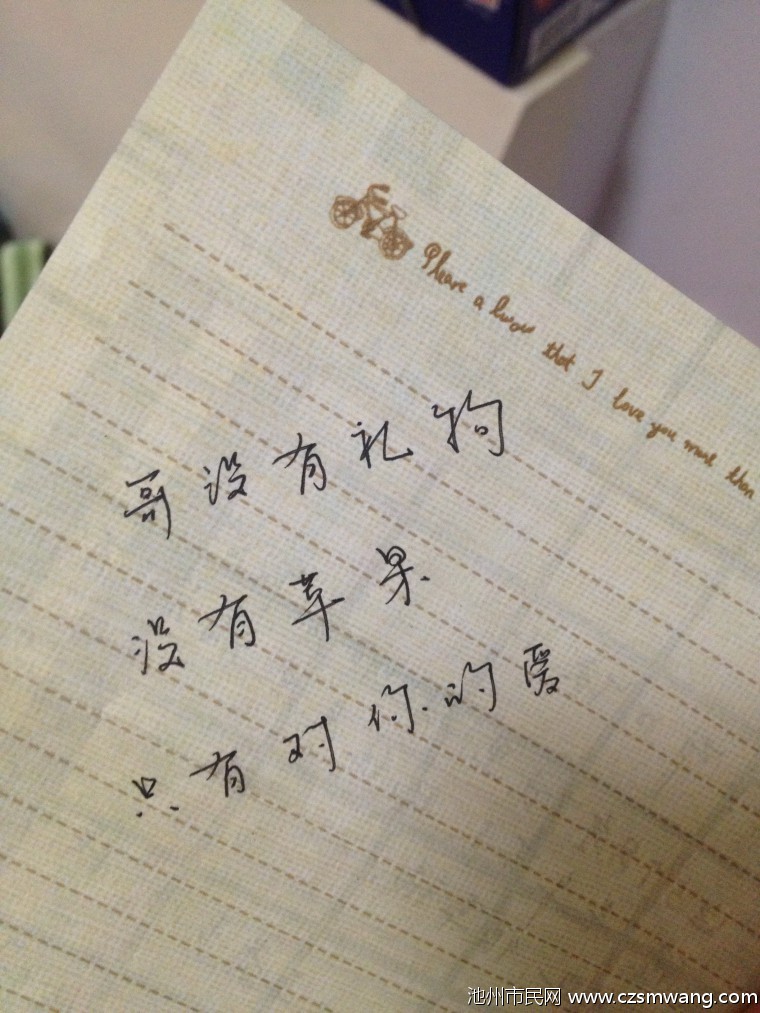 Please a know that I love you more than
哥没有礼物
没有苹果
只有对你的爱
池州市民网 www.czsmwang.com